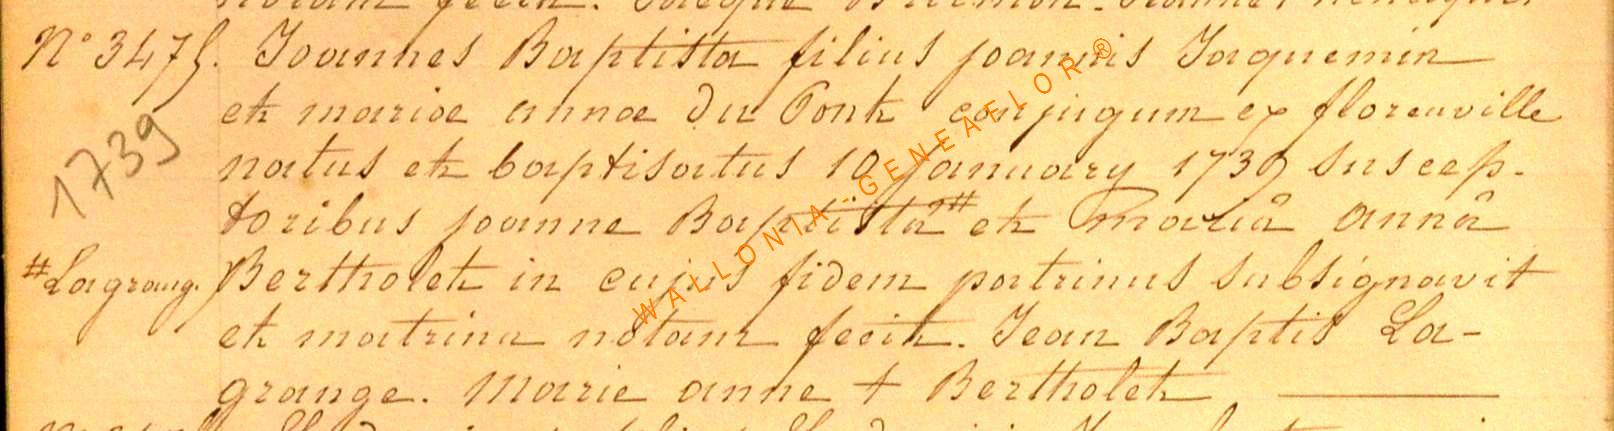 notam fecit.
N° 3475. Joannes Baptista filius joannis Jaquemin
et mariae annae du Pont conjugum ex florenville
1739
natus et baptisatus 10 january 1739 suscep-
toribus joanne Baptista # et Mariâ annâ
# Lagrang. Bertholet in cujus fidem patrinus subsignavit
et matrina notam fecit. Jean Baptis La-
grange. Marie anne + Bertholet
WALLONIA-GENEAFLOR®